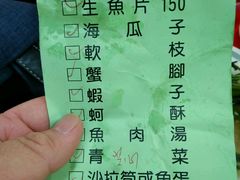 生魚片 150
海瓜子
軟枝
蟹腳
蝦子
蚵酥
魚肉湯
青菜
沙拉筍或魚蛋